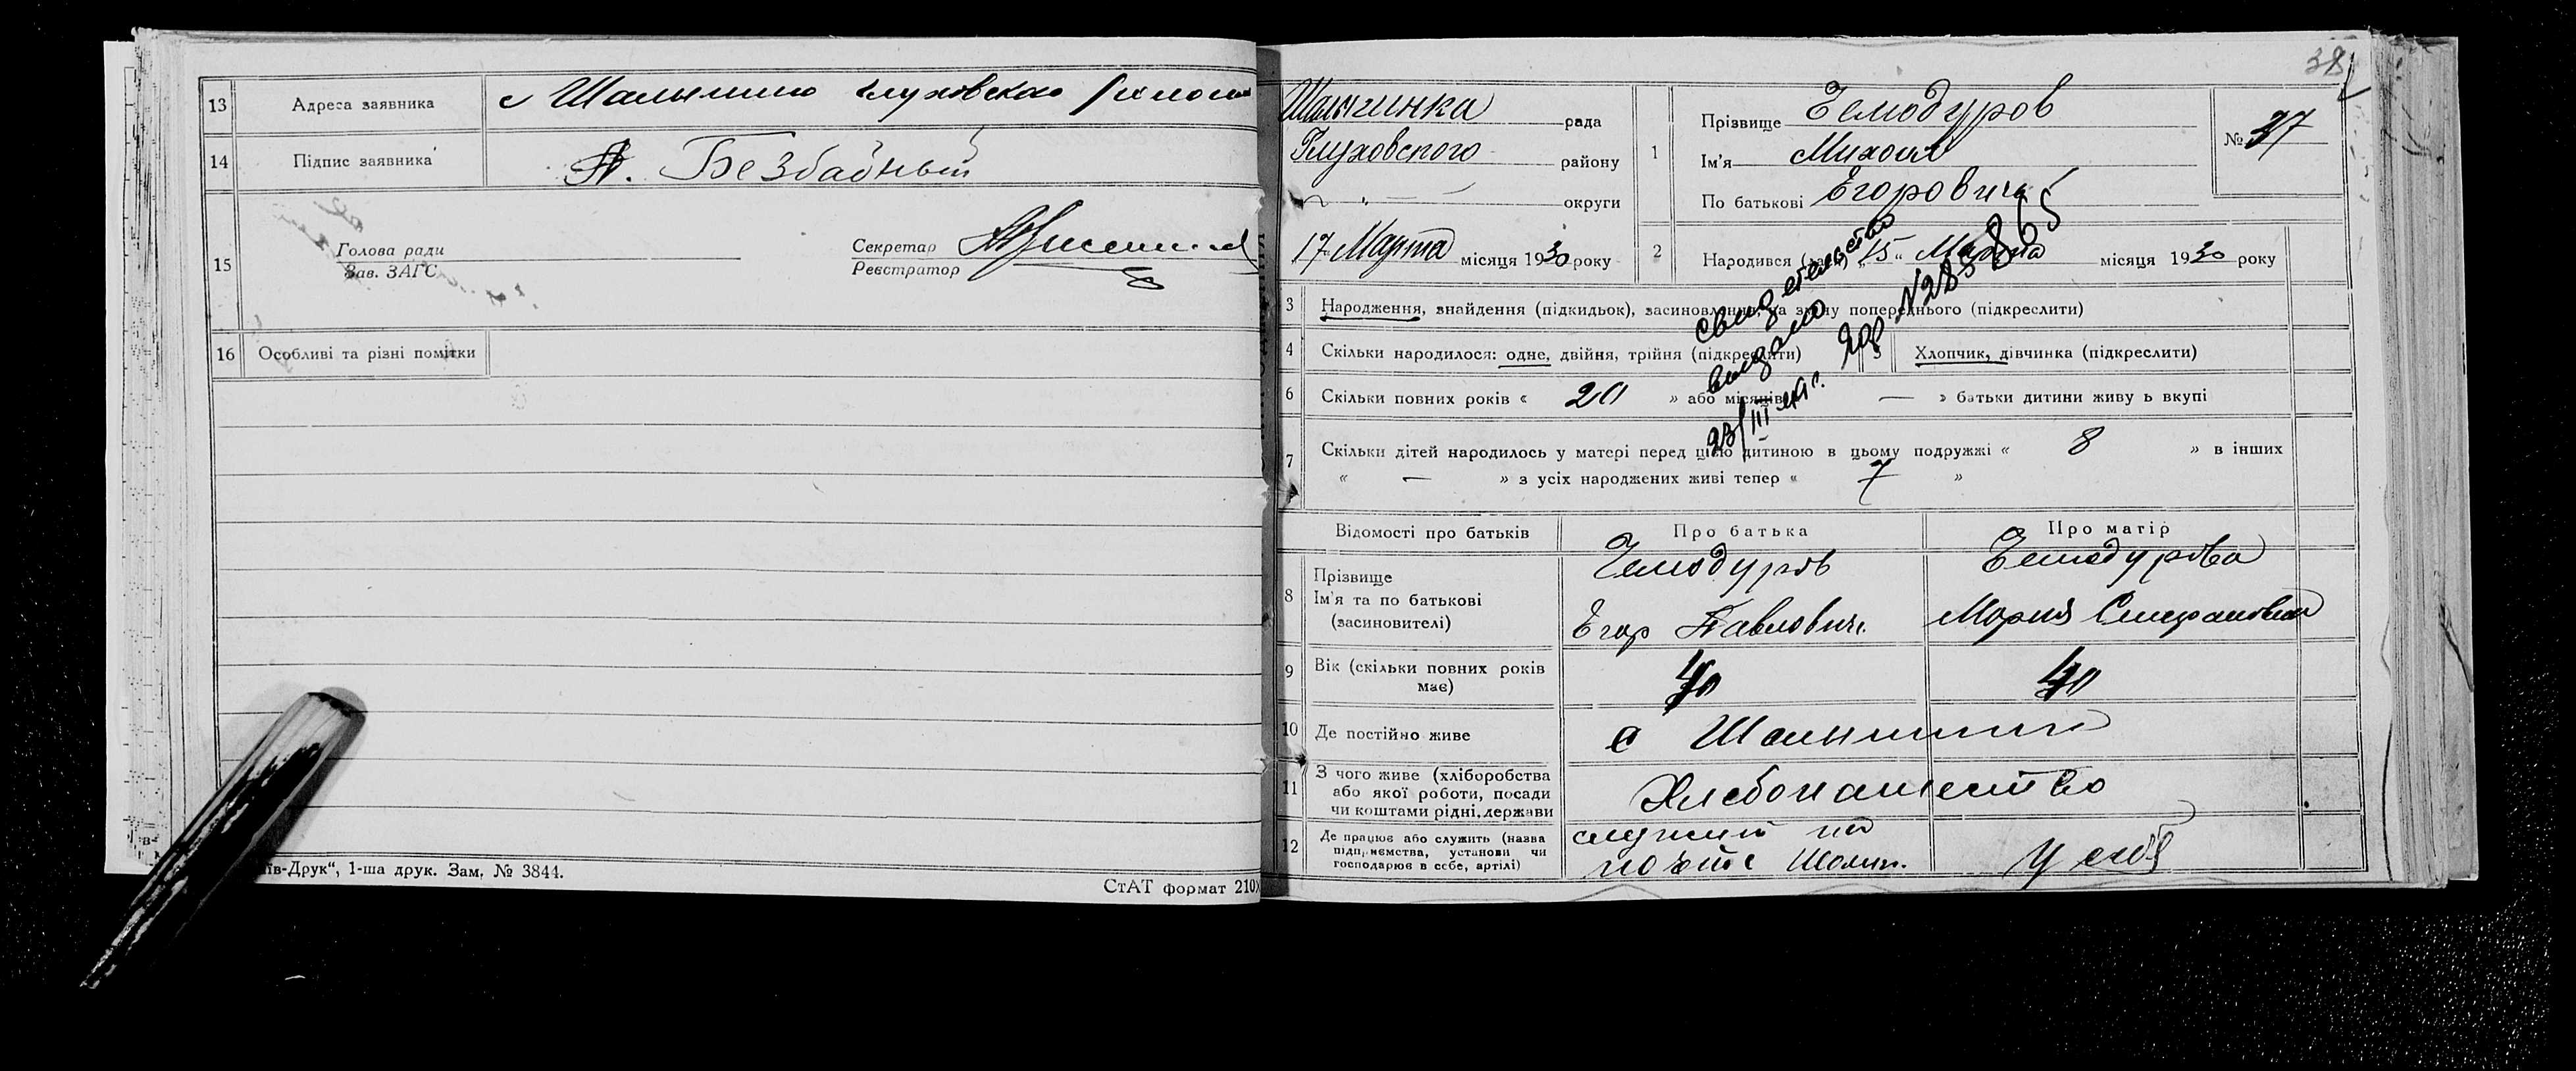 13 Адреса заявника с Шалыгино Глуховского района
14 Підпис заявника А. Безбабный
15 Голова ради
Зав. ЗАГС
Секретар
Реєстратор
16 Особливі та різні помітки
їв-Друк“, 1-ша друк. Зам. № 3844.
СтАТ формат 210
38
Шалыгинка рада
Глуховского району
— " — округи
17 Марта місяця 1930 року
1 Прізвище Чемодуров
Ім'я Михаил
По батькові Егорович
№ 37
2 Народився (лась) „15“ Марта місяця 1930 року
свидетельство
выдано
23/III
№ 285865
3 Народження, знайдення (підкидьок), засиновлення, на зміну попереднього (підкреслити)
4 Скільки народилося: одне, двійня, трійня (підкреслити)
5 Хлопчик, дівчинка (підкреслити)
6 Скільки повних років « 20 » або місяців — » батьки дитини живуть вкупі
7 Скільки дітей народилось у матері перед цією дитиною в цьому подружжі « 8 » в інших
« — » з усіх народжених живі тепер « 7 »
Відомості про батьків Про батька Про матір
8 Прізвище
Ім'я та по батькові
(засиновителі)
Чемодуров
Егор Павлович
Чемодурова
Мария Степановна
9 Вік (скільки повних років
має)
40 40
10 Де постійно живе с Шалыгино
11 З чого живе (хліборобства
або якої роботи, посади
чи коштами рідні, держави
Хлебопашество
12 Де працює або служить (назва
підприємства, установи чи
господарює в себе, артілі)
служит на
почте Шалыг.
У себя